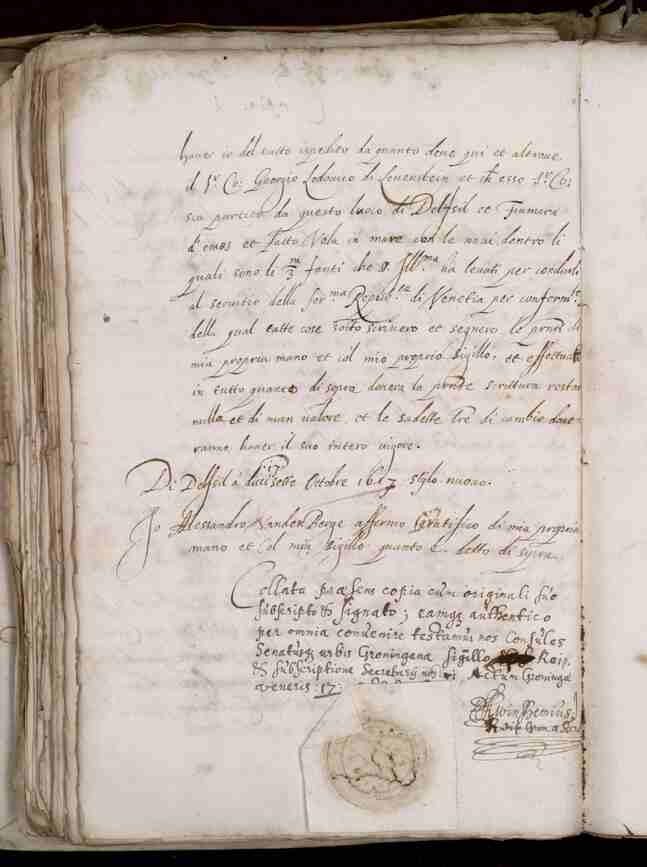 haver io del tutto ispedito da quanto deve qui et altrove
il Sr. Co: Georgio Lodovico di Levenstein et ch esso Sr. Co:
sia partito da questo luoco di Delfsil et
d'emas et fatto Vela in mare con le navi dentro li
quali sono li m/3 fanti che S. Illma. ha levati per condurli
al servitio della Serma. Repub.ca di Venetia per
della qual tutte cose sotto scrivero et segnero le prnti di
mia propria mano et col mio proprio Sigillo, et effectuato
in tutto quanto di sopra dovera la prnte scrittura restar
nulla et di niun valore, et le sudette tre di cambio dove-
ranno haver il suo intero vigore.
Di Delfsil à Ottobre 1617 stylo nuovo.
Io Alessandro Vanden Berge affermo di mea propria
mano et col mio sigillo quanto è detto di sopra.
Collata præsens copia cum originali suo
subscripto & signato; eamq; authentico
per omnia convenire testamur nos Consules
Senatusq; urbis Groningana Sigillo Reip.
& subscriptione Secretarij nri Actum Groninga
veneris 17